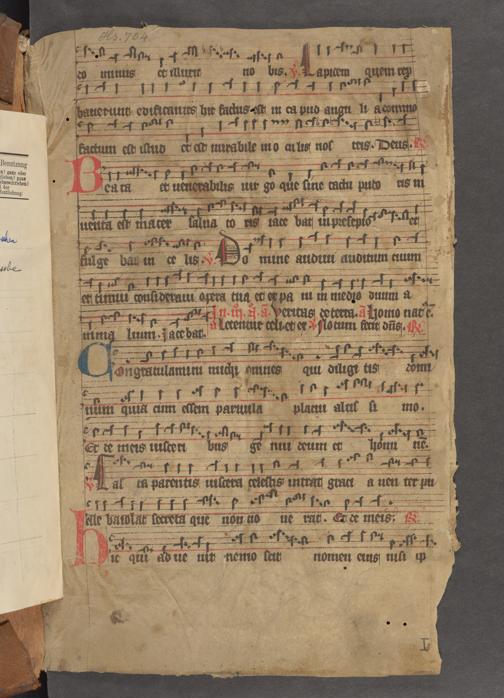 Hs. 704
co minus et illuxit no bis. V. Lapidem quem rep
bauerunt edificantes hic factus est in ca pud angu li a domino
factum est istud et est mirabile in o culis nos tris. Deus. R.
Beata et uenerabilis uir go que sine tactu pudo ris in
uenta est mater salua to ris iace bat in presepio et
fulge bat in ce lis. V. Do mine audiui auditum tuum
et timui consideraui opera tua et ex pa ui in medio duum a
In. iii. n. a. Veritas de terra. a Homo nat e.
nima lium. Jacebat. a Letentur celi et ex V Notum fecit dns. R.
Congratulamini michi omnes qui diligi tis domi
num quia cum essem paruula placui altis si mo.
Et de meis uisceri bus ge nui deum et homi ne.
V. Cas ta parentis uiscera celestis intrat graci a uen ter pu
elle baiolat secreta que non no ue rat. Et de meis. R.
Hic qui ad ue nit nemo scit nomen eius nisi ip
I